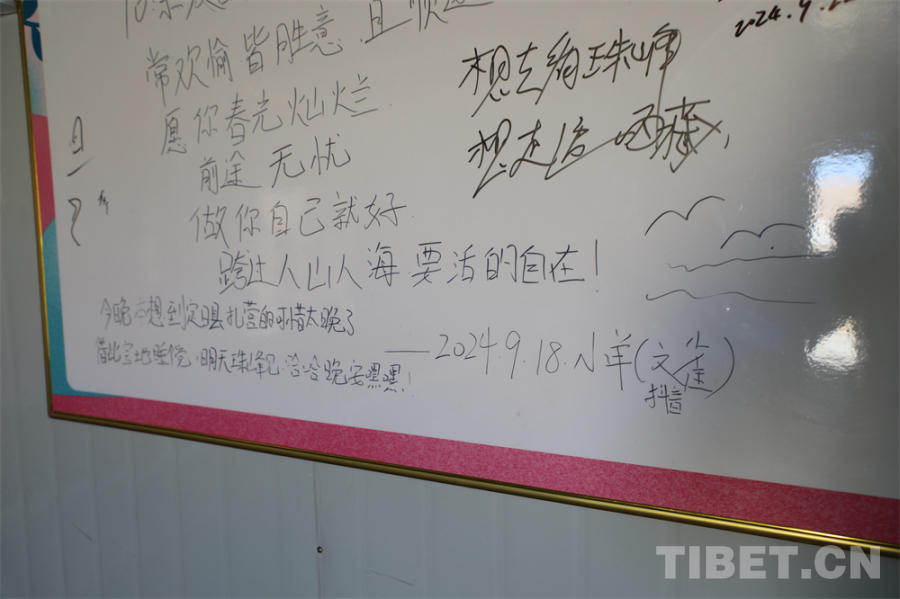 常欢愉皆胜意 且顺遂
愿你春光灿烂
前途无忧
做你自己就好
跨过人山人海 要活的自在！
今晚本想到定日县扎营的可惜太晚了
借此宝地睡觉，明天珠峰见，哈哈晚安嘿嘿！
——2024.9.18.小羊(文峑)
抖音
2024.9.22
想去看珠峰
想走近西藏，
且
TIBET.CN